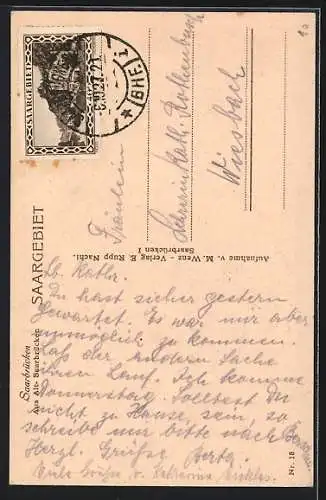 SAARGEBIET
5.9.27.21
(BHF) 1
Fräulein
Lehrerin Kath. Rothenburg
Wiesbach
Aufnahme v. M. Wenz - Verlag E. Rupp Nachf.
Saarbrücken 1
Saarbrücken
Aus Alt-Saarbrücken
SAARGEBIET
Lb. Kathr.
Du hast sicher gestern
gewartet. Es war mir aber
unmöglich zu kommen.
Laß der andern Sache
ihren Lauf. Ich komme
Donnerstag. Solltest Du
nicht zu Hause sein, so
schreibe mir bitte nach
Herzl. Grüße Berta
Viele Grüße v. Katharina
Nr. 18